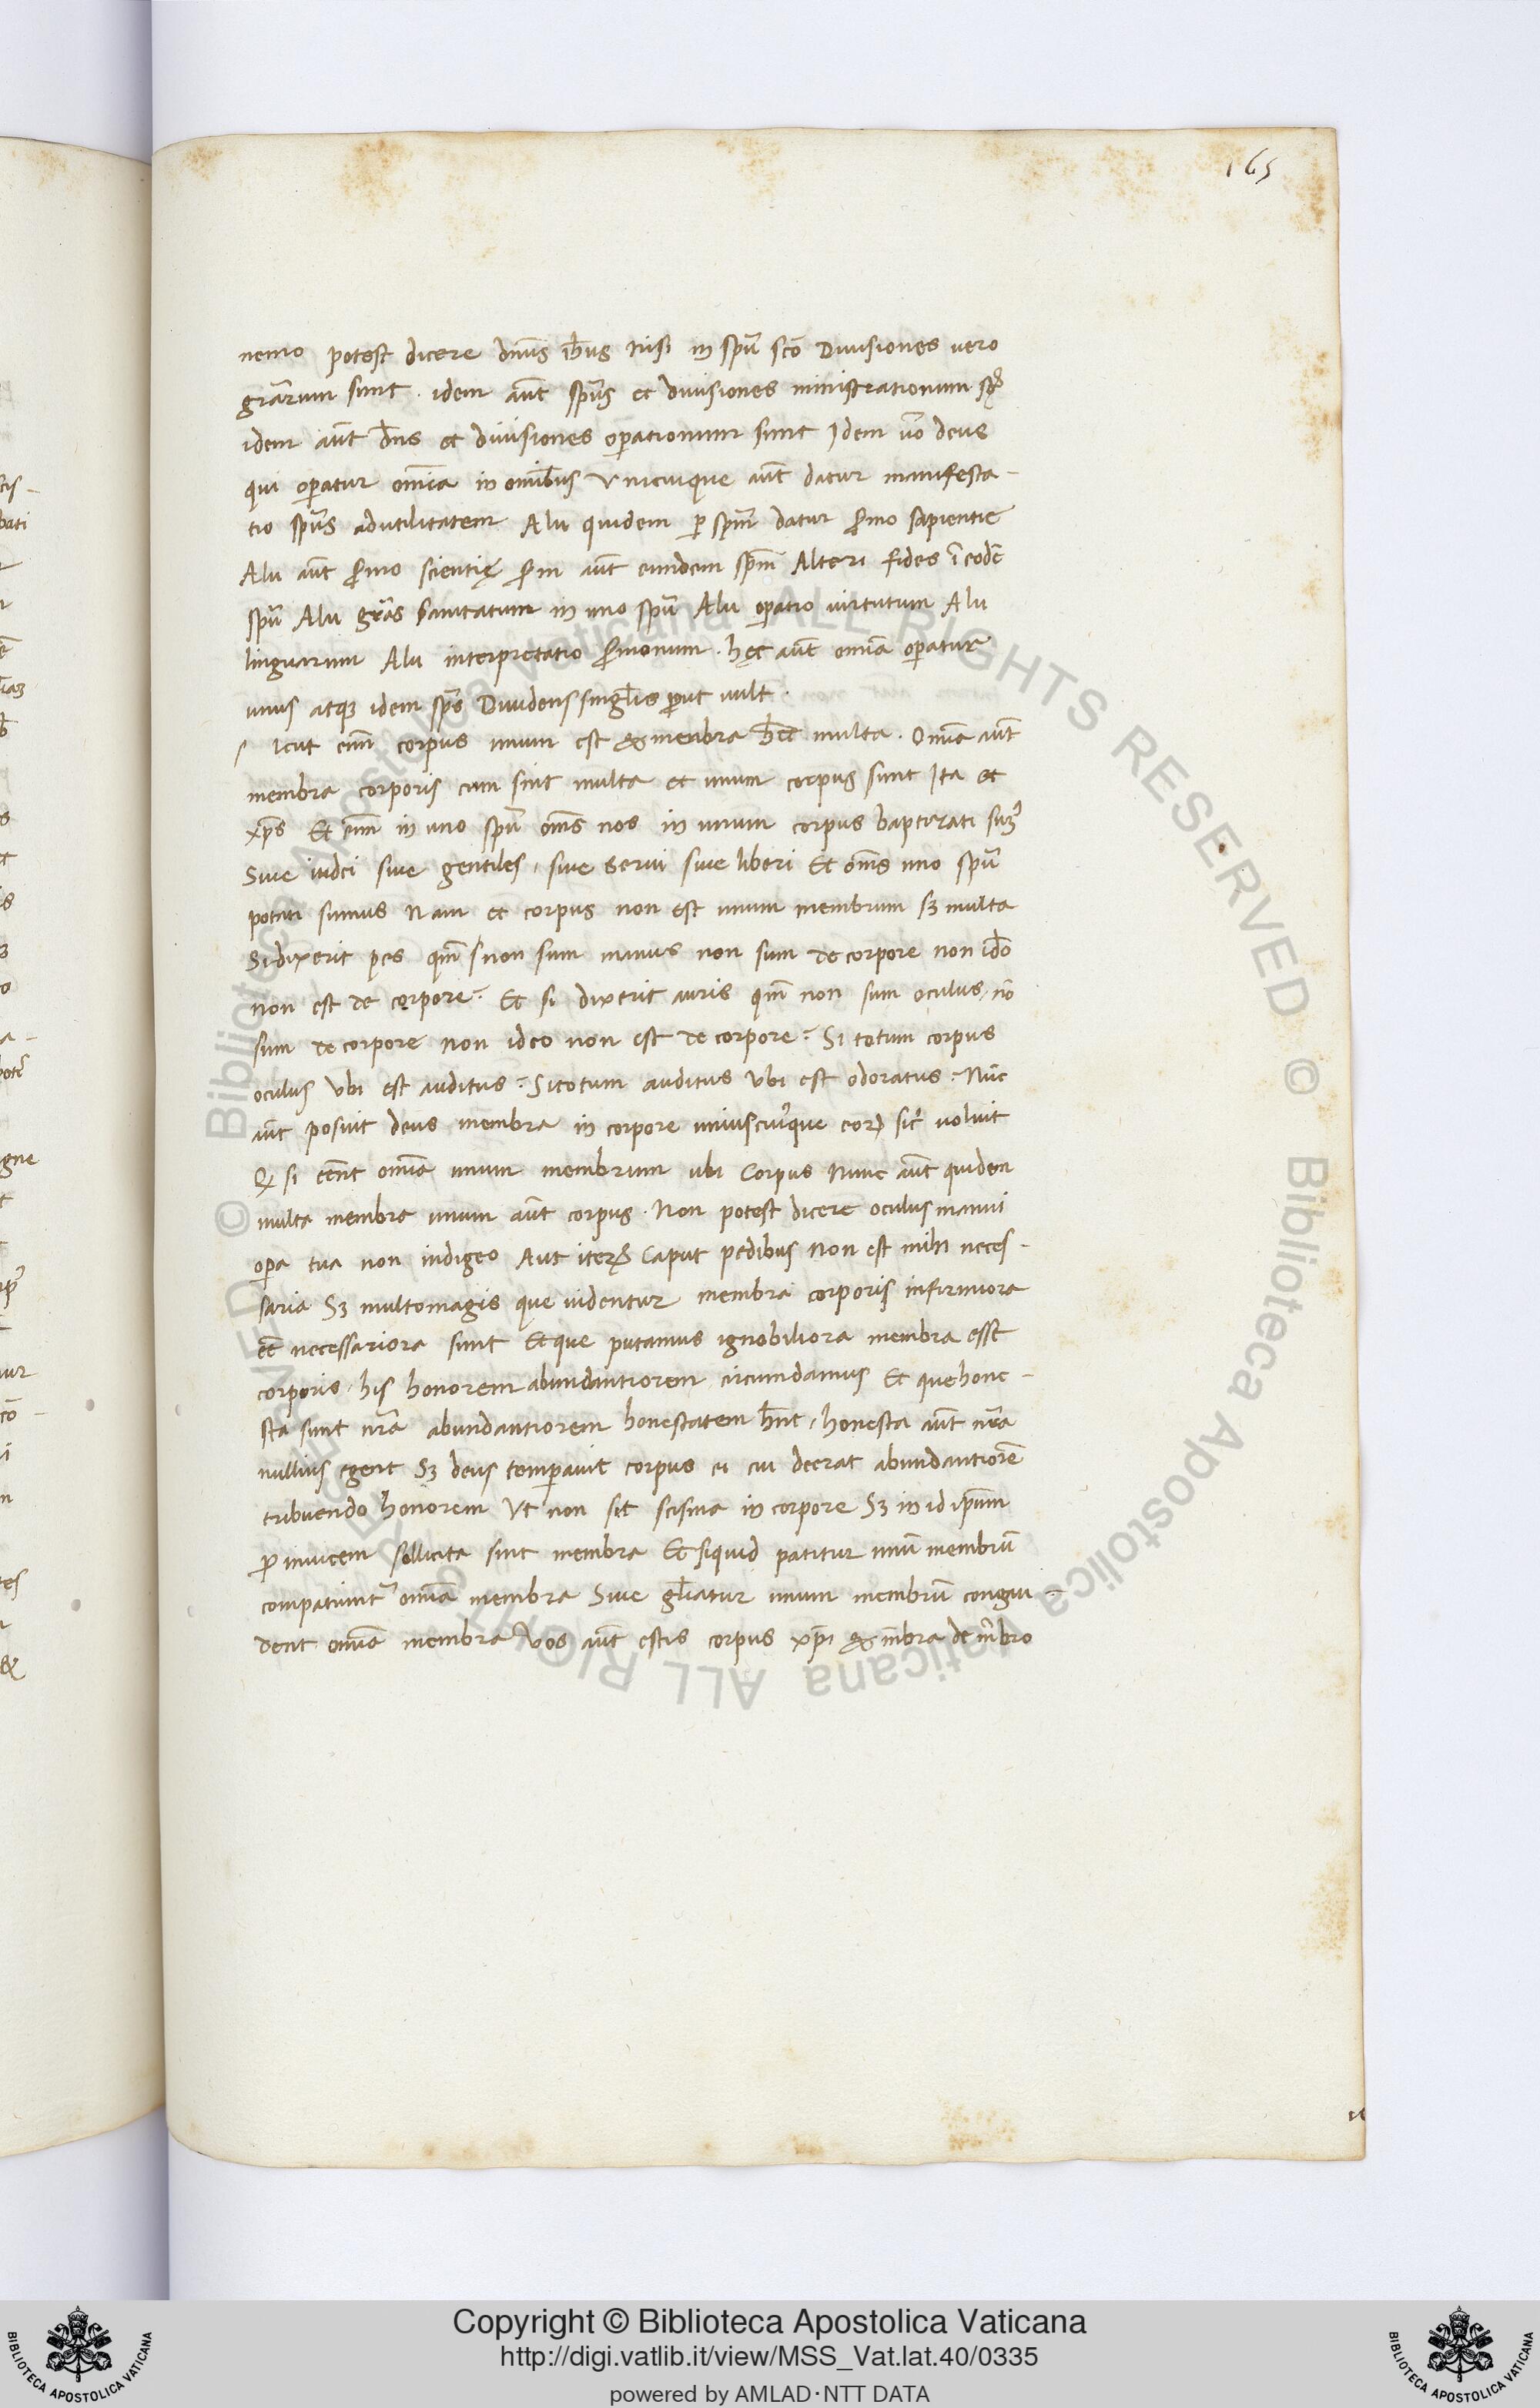 165
nemo potest dicere dnũs ih̃us nisi in spũ scõ Diuisiones uero
grãrum sunt . idem aũt spũs et diuisiones ministrationum st̃
idem aũt dñs et diuisiones oꝑationum sunt Idem uõ deus
qui oꝑatur omĩa in omĩbus Vnicuique aũt datur manifesta-
tio spũs adutilitatem Alii quidem ꝑ spm̃ datur s̃mo sapientie
Alii aũt s̃mo scientię s̃m aũt eundem spm̃ Alteri fides ĩ eodẽ
spũ Alii grãs sanitatum in uno spũ Alii oꝑatio uirtutum Alii
linguarum Alii interpretatio s̃monum . hęc aũt omĩa oꝑatur
unus atqꝫ idem spũs Diuidens singl̃is ꝓut uult .
s icut eñi corpus unum est & menbra h̃et multa . Omĩa aũt
membra corporis cum sint multa et unum corpus sunt Ita et
xp̃s Et eñi in uno spũ om̃s nos in unum corpus baptizati sum᷒
Siue iudei siue gentiles , siue serui siue liberi Et om̃s uno spũ
potati sumus Nam et corpus non est unum membrum sꝫ multa
Si dixerit pes qm̃ non sum manus non sum de corpore non id̃o
non est de corpore ? Et si dixerit auris qm̃ non sum oculus , nõ
sum de corpore non ideo non est de corpore ? Si totum corpus
oculus Vbi est auditus ? Si totum auditus Vbi est odoratus ? Nũc
aũt posuit deus membra in corpore uniuscuiq̃que eoꝝ sic̃ uoluit
Qꝫ si eẽnt omĩa unum membrum ubi Corpus Nunc aũt quidem
multa membra unum aũt corpus . Non potest dicere oculus manui
oꝑa tua non indigeo Aut iteꝝ Caput pedibus Non est mihi neces-
saria Sꝫ multomagis que uidentur membra corporis infirmiora
eẽ necessariora sunt Et que putamus ignobiliora membra esse
corporis , his honorem abundantiorem circumdamus Et que hone-
sta sunt nrã abundantiorem honestatem hñt , honesta aũt nrã
nullius egent Sꝫ deus temꝑauit corpus ei cui deerat abundantiorẽ
tribuendo honorem Vt non sit scisma in corpore Sꝫ in id ip̃sum
ꝓ inuicem sollicita sint membra Et siquid patitur unũ membrũ
compatiunt᷒ omĩa membra Siue gl̃iatur unum membrũ congau-
dent omĩa membra Vos aũt estis corpus xp̃i & m̃bra de m̃bro
Copyright © Biblioteca Apostolica Vaticana
http://digi.vatlib.it/view/MSS_Vat.lat.40/0335
powered by AMLAD·NTT DATA